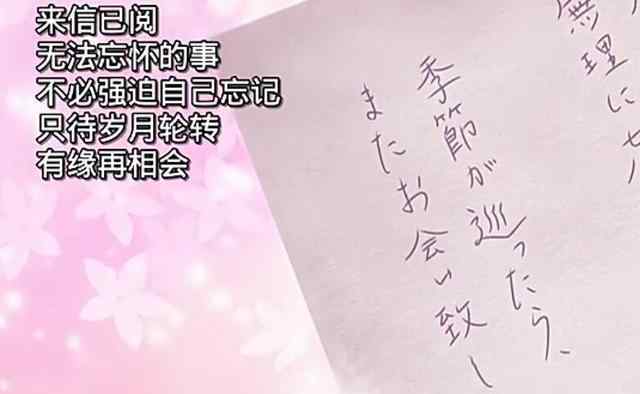 来信已阅
无法忘怀的事
不必强迫自己忘记
只待岁月轮转
有缘再相会
無理に
季節が巡ったら、
またお会い致し